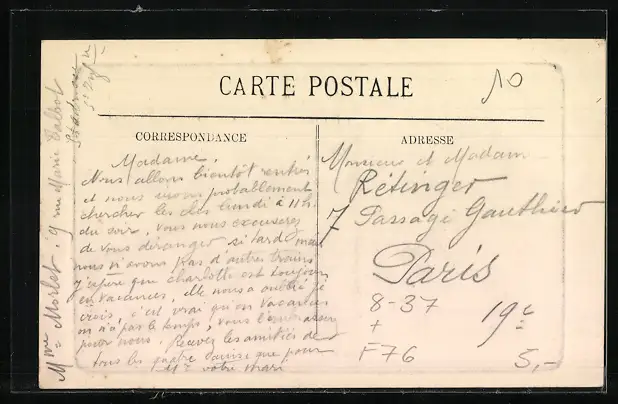 CARTE POSTALE
10
CORRESPONDANCE
ADRESSE
Madame,
Nous allons bientôt rentrer
et nous irons probablement
chercher les clés lundi à 11 h.
du soir, vous nous excuserez
de vous déranger si tard mais
nous n'avons pas d'autres trains
J'espère que charlotte est toujours
en vacances, elle nous a oublié je
crois, c'est vrai qu'en vacances
on n'a pas le temps, vous l'embrasserez
pour nous. Recevez les amitiés de
tous les quatre que pour
votre mari
Monsieur et Madame
Rétinger
7 Passage Gauthier
Paris
8-37
+
F76
19e
5,-
Mme Morlot. 9 rue Marie Talbot